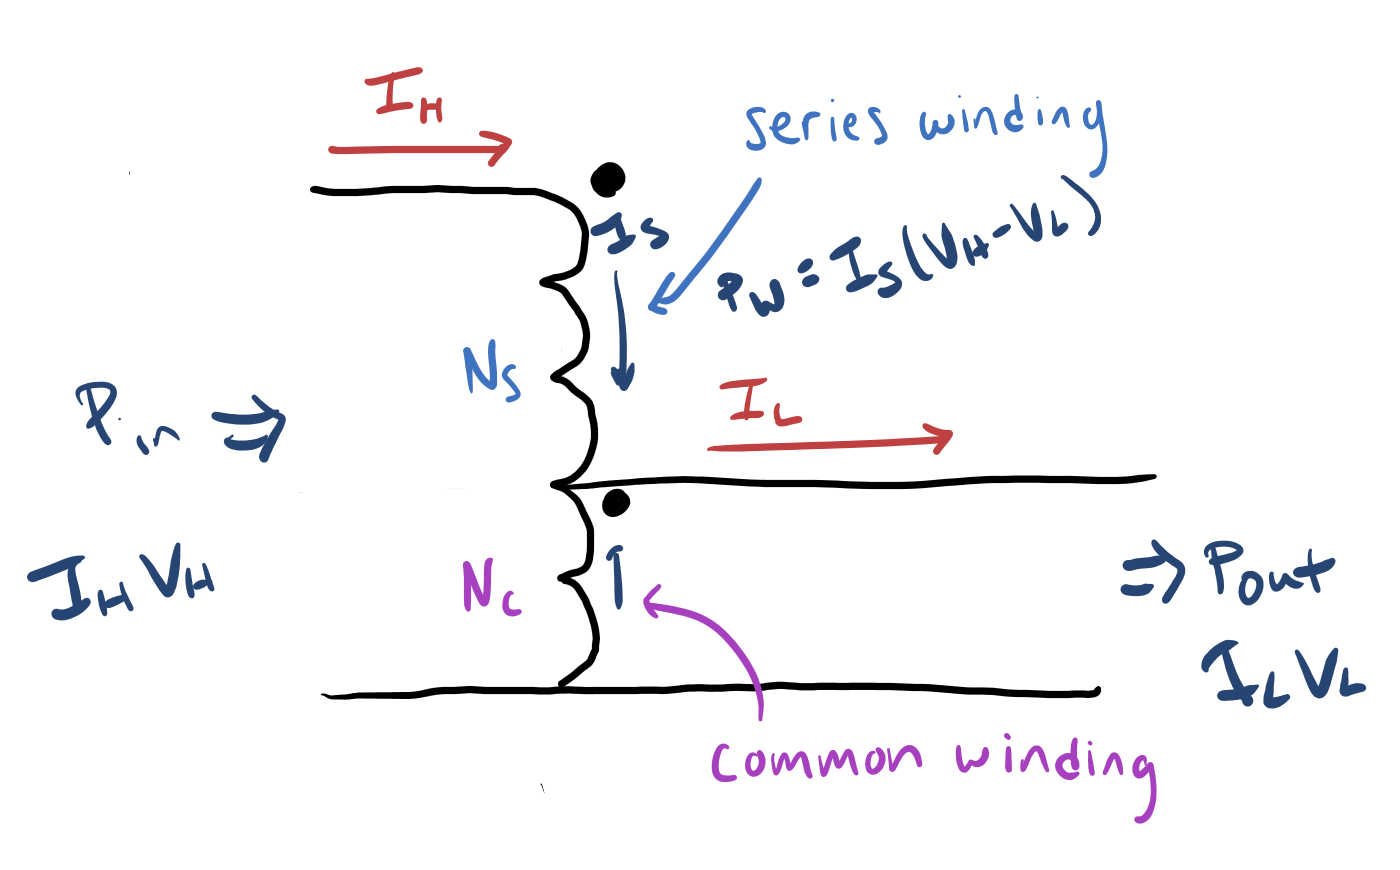 I_H
series winding
I_S
P_W = I_S(V_H - V_L)
N_S
I_L
P_in ⇒
I_H V_H
N_C
⇒ P_out
I_L V_L
common winding